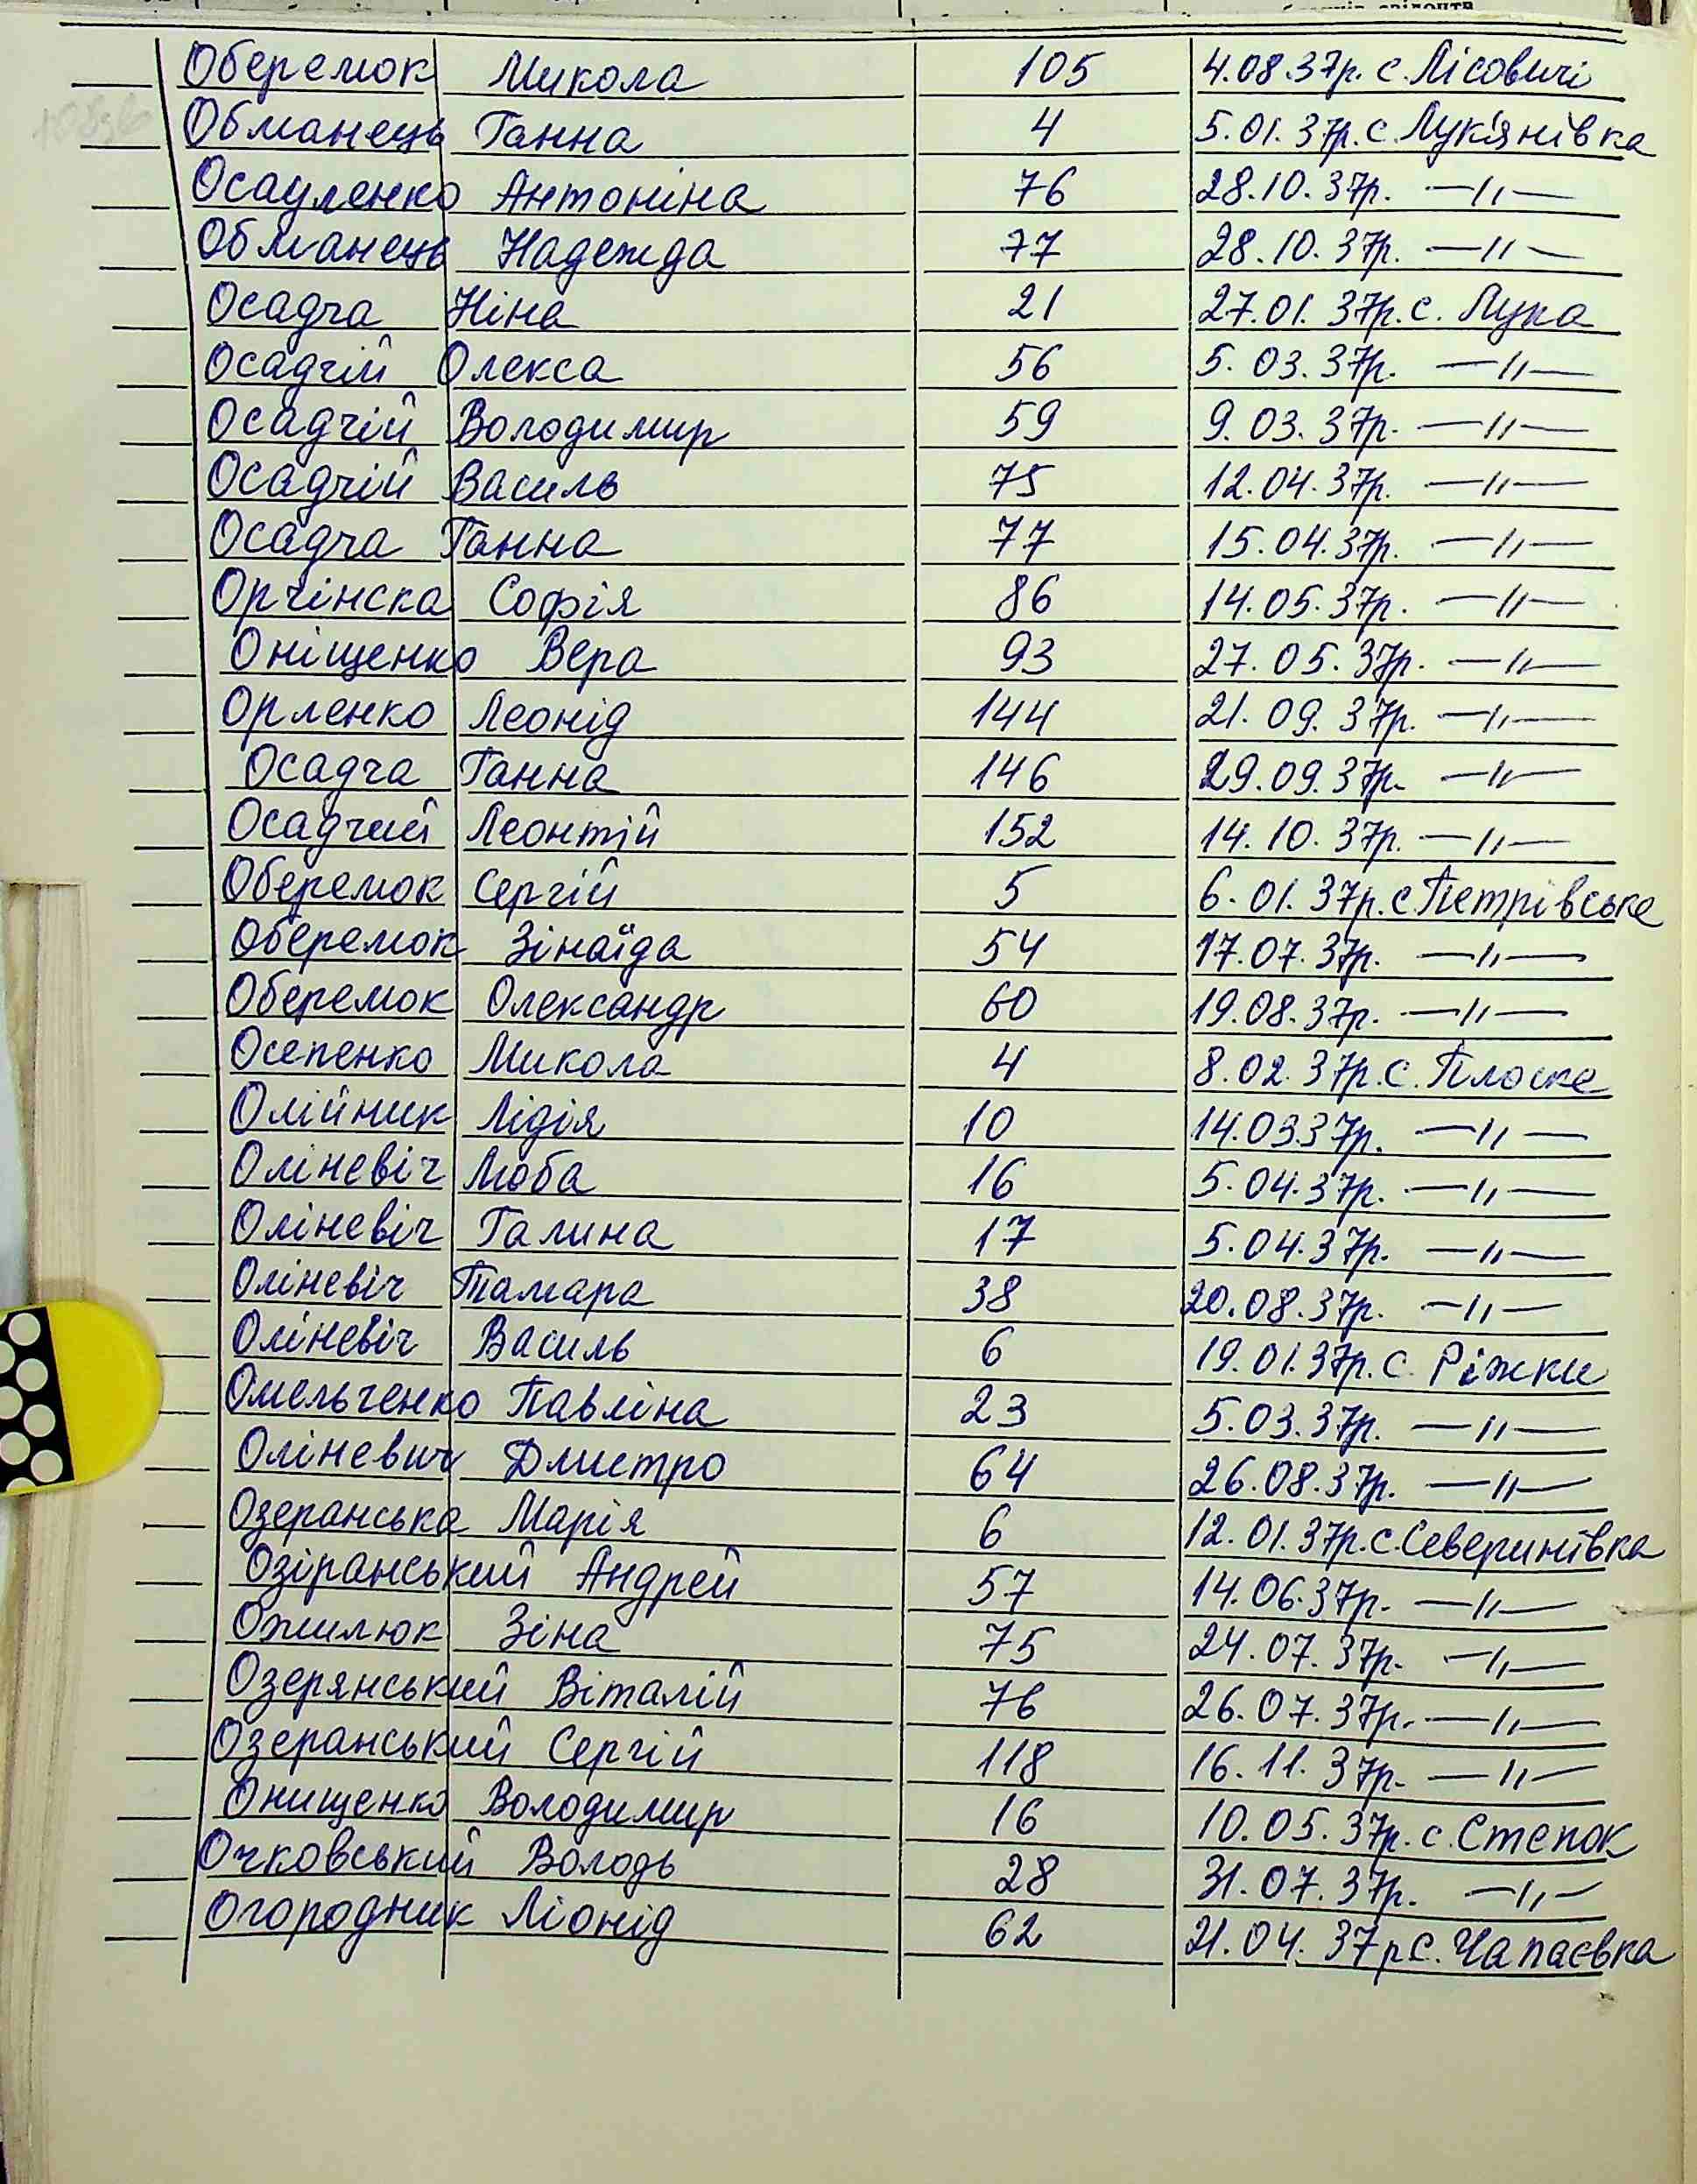 Оберемок Микола 105 4.08.37р. с. Лісовичі
Обманець Ганна 4 5.01.37р. с. Лук'янівка
Осауленко Антоніна 76 28.10.37р. —"—
Обманець Надежда 77 28.10.37р. —"—
Осадча Ніна 21 27.01.37р. с. Лука
Осадчій Олекса 56 5.03.37р. —"—
Осадчій Володимир 59 9.03.37р. —"—
Осадчій Василь 75 12.04.37р. —"—
Осадча Ганна 77 15.04.37р. —"—
Орчінска Софія 86 14.05.37р. —"—
Оніщенко Вера 93 27.05.37р. —"—
Орленко Леонід 144 21.09.37р. —"—
Осадча Ганна 146 29.09.37р. —"—
Осадчий Леонтій 152 14.10.37р. —"—
Оберемок Сергій 5 6.01.37р. с. Петрівське
Оберемок Зінаїда 54 17.07.37р. —"—
Оберемок Олександр 60 19.08.37р. —"—
Осепенко Микола 4 8.02.37р. с. Плоске
Олійник Лідія 10 14.03.37р. —"—
Оліневіч Люба 16 5.04.37р. —"—
Оліневіч Галина 17 5.04.37р. —"—
Оліневіч Тамара 38 20.08.37р. —"—
Оліневіч Василь 6 19.01.37р. с. Ріжки
Омельченко Павліна 23 5.03.37р. —"—
Оліневич Дмистро 64 26.08.37р. —"—
Озеранська Марія 6 12.01.37р. с. Северинівка
Озіранський Андрей 57 14.06.37р. —"—
Ожилюк Зіна 75 24.07.37р. —"—
Озерянський Віталій 76 26.07.37р. —"—
Озеранський Сергій 118 16.11.37р. —"—
Онищенко Володимир 16 10.05.37р. с. Степок
Очковський Володь 28 31.07.37р. —"—
Огородник Ліонід 62 21.04.37р с. Чапаєвка